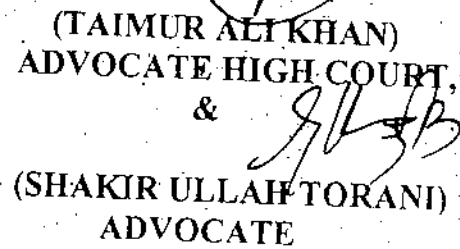 (TAIMUR ALI KHAN)
ADVOCATE HIGH COURT,
&
(SHAKIR ULLAH TORANI)
ADVOCATE